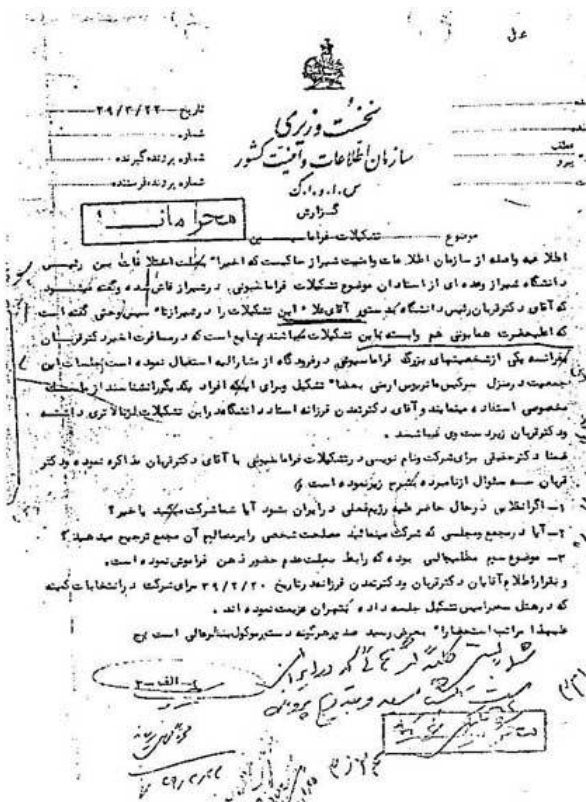 نخست وزیری
سازمان اطلاعات و امنیت کشور
س.ا.و.ا.ک
گزارش
تاریخ ۳۹/۳/۲۲
شماره
شماره پرونده گیرنده
شماره پرونده فرستنده
مطلب
پیرو
محرمانه
موضوع تشکیلات فراماسین
اطلاعیه واصله از سازمان اطلاعات و امنیت شیراز حاکیست که اخیرا" بعلت اختلافات بین رئیس
دانشگاه شیراز و عده ای از استادان موضوع تشکیلات فراماسونی در شیراز فاش شده و گفته میشود
که آقای دکتر قربان رئیس دانشگاه بدستور آقای علا" این تشکیلات را در شیراز تاسیس و حتی گفته است
که اعلیحضرت همایونی هم وابسته باین تشکیلات میباشند شایع است که در مسافرت اخیر دکتر قربان
بفرانسه یکی از شخصیتهای بزرگ فراماسونی در فرودگاه از مشارالیه استقبال نموده است جلسات این
جمعیت در منزل سرکیس ماتریوس ارمنی بعضا" تشکیل و برای اینکه افراد یکدیگر را بشناسند از علامت
مخصوصی استفاده مینمایند و آقای دکتر تمدن فرزانه استاد دانشگاه در این تشکیلات مقام بالاتری داشته
و دکتر قربان زیردست وی میباشد.
ضمنا دکتر حقیقی برای شرکت و نام نویسی در تشکیلات فراماسونی با آقای دکتر قربان مذاکره نموده و دکتر
قربان سه سئوال از نامبرده بشرح زیر نموده است
۱- اگر انقلابی در حال حاضر علیه رژیم فعلی در ایران بشود آیا شما شرکت میکنید یا خیر؟
۲- آیا در مجمع و مجلسی که شرکت مینمائید مصلحت شخصی را بر مصالح آن مجمع ترجیح میدهید؟
۳- موضوع سیم مطلب جالبی بوده که رابط بعلت عدم حضور ذهن فراموش نموده است.
و بقرار اطلاع آقایان دکتر قربان و دکتر تمدن فرزانه در تاریخ ۳۹/۲/۲۰ برای شرکت در انتخابات کمیته
که در هتل تشکیل جلسه داده بتهران عزیمت نموده اند.
علیهذا مراتب استحضارا" بعرض رسید هرگونه دستور موکول بنظر عالی است